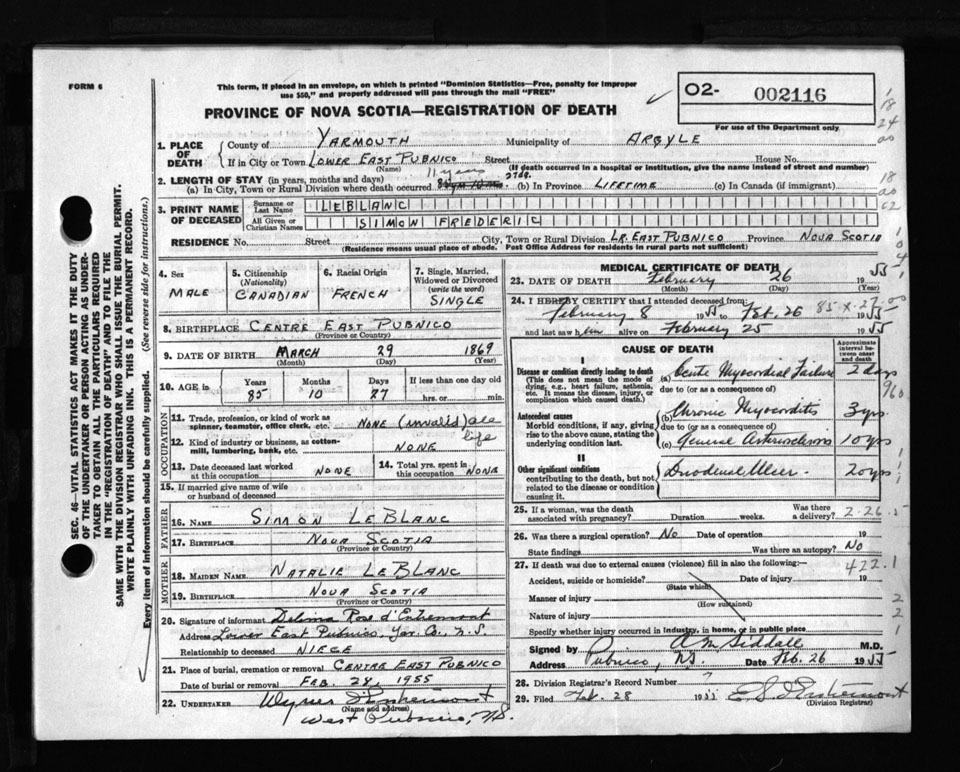 FORM 6
This form, if placed in an envelope, on which is printed "Dominion Statistics—Free, penalty for improper
use $50," and properly addressed will pass through the mail "FREE"
PROVINCE OF NOVA SCOTIA—REGISTRATION OF DEATH
O2- 002116
For use of the Department only.
SEC. 46—VITAL STATISTICS ACT MAKES IT THE DUTY
OF THE UNDERTAKER OR PERSON ACTING AS UNDER-
TAKER TO OBTAIN ALL THE PARTICULARS REQUIRED
IN THE "REGISTRATION OF DEATH" AND TO FILE THE
SAME WITH THE DIVISION REGISTRAR WHO SHALL ISSUE THE BURIAL PERMIT.
WRITE PLAINLY WITH UNFADING INK. THIS IS A PERMANENT RECORD.
Every item of information should be carefully supplied. (See reverse side for instructions.)
1. PLACE OF DEATH
County of YARMOUTH Municipality of ARGYLE
If in City or Town LOWER EAST PUBNICO Street House No.
(Name) (If death occurred in a hospital or institution, give the name instead of street and number)
2. LENGTH OF STAY (in years, months and days) 11 years
(a) In City, Town or Rural Division where death occurred (b) In Province LIFETIME (c) In Canada (if immigrant)
3. PRINT NAME OF DECEASED
Surname or Last Name LEBLANC
All Given or Christian Names SIMON FREDERIC
RESIDENCE No. Street City, Town or Rural Division LR. EAST PUBNICO Province NOVA SCOTIA
(Residence means usual place of abode. Post Office Address for residents in rural parts not sufficient)
4. Sex MALE
5. Citizenship (Nationality) CANADIAN
6. Racial Origin FRENCH
7. Single, Married, Widowed or Divorced (write the word) SINGLE
8. BIRTHPLACE CENTRE EAST PUBNICO
(Province or Country)
9. DATE OF BIRTH MARCH 29 1869
(Month) (Day) (Year)
10. AGE in Years Months Days If less than one day old
85 10 27 hrs. or min.
OCCUPATION
11. Trade, profession, or kind of work as spinner, teamster, office clerk, etc. NONE (invalid) all life
12. Kind of industry or business, as cotton-mill, lumbering, bank, etc. NONE
13. Date deceased last worked at this occupation NONE
14. Total yrs. spent in this occupation NONE
15. If married give name of wife or husband of deceased
FATHER
16. NAME SIMON LEBLANC
17. BIRTHPLACE NOVA SCOTIA
(Province or Country)
MOTHER
18. MAIDEN NAME NATALIE LEBLANC
19. BIRTHPLACE NOVA SCOTIA
(Province or Country)
20. Signature of informant Delima Rose d'Entremont
Address Lower East Pubnico, Yar. Co., N.S.
Relationship to deceased NIECE
21. Place of burial, cremation or removal CENTRE EAST PUBNICO
Date of burial or removal FEB. 28, 1955
22. UNDERTAKER d'Entremont
(Name and address)
West Pubnico, N.S.
MEDICAL CERTIFICATE OF DEATH
23. DATE OF DEATH February 26 1955
(Month) (Day)
24. I HEREBY CERTIFY that I attended deceased from
February 8 1955 to Feb. 26 1955
and last saw him alive on February 25 1955
CAUSE OF DEATH
Approximate interval between onset and death
I
Disease or condition directly leading to death (a) Acute Myocardial Failure 2 days
(This does not mean the mode of dying, e.g., heart failure, asthenia, etc. It means the disease, injury, or complication which caused death.)
due to (or as a consequence of)
Antecedent causes (b) Chronic Myocarditis 3 yrs
Morbid conditions, if any, giving rise to the above cause, stating the underlying condition last.
due to (or as a consequence of)
(c) General Arteriosclerosis 10 yrs
II
Other significant conditions Duodenal Ulcer 20 yrs
contributing to the death, but not related to the disease or condition causing it.
25. If a woman, was the death associated with pregnancy? Duration weeks. Was there a delivery? 2-26-5
26. Was there a surgical operation? No Date of operation 19
State findings Was there an autopsy? No
27. If death was due to external causes (violence) fill in also the following:— 422.1
Accident, suicide or homicide? Date of injury 19
(State which)
Manner of injury
(How sustained)
Nature of injury
Specify whether injury occurred in industry, in home, or in public place
Signed by A M Siddall M.D.
Address Pubnico, N.S. Date Feb. 26 1955
28. Division Registrar's Record Number 7
29. Filed Feb. 28 1955 d'Entremont
(Division Registrar)